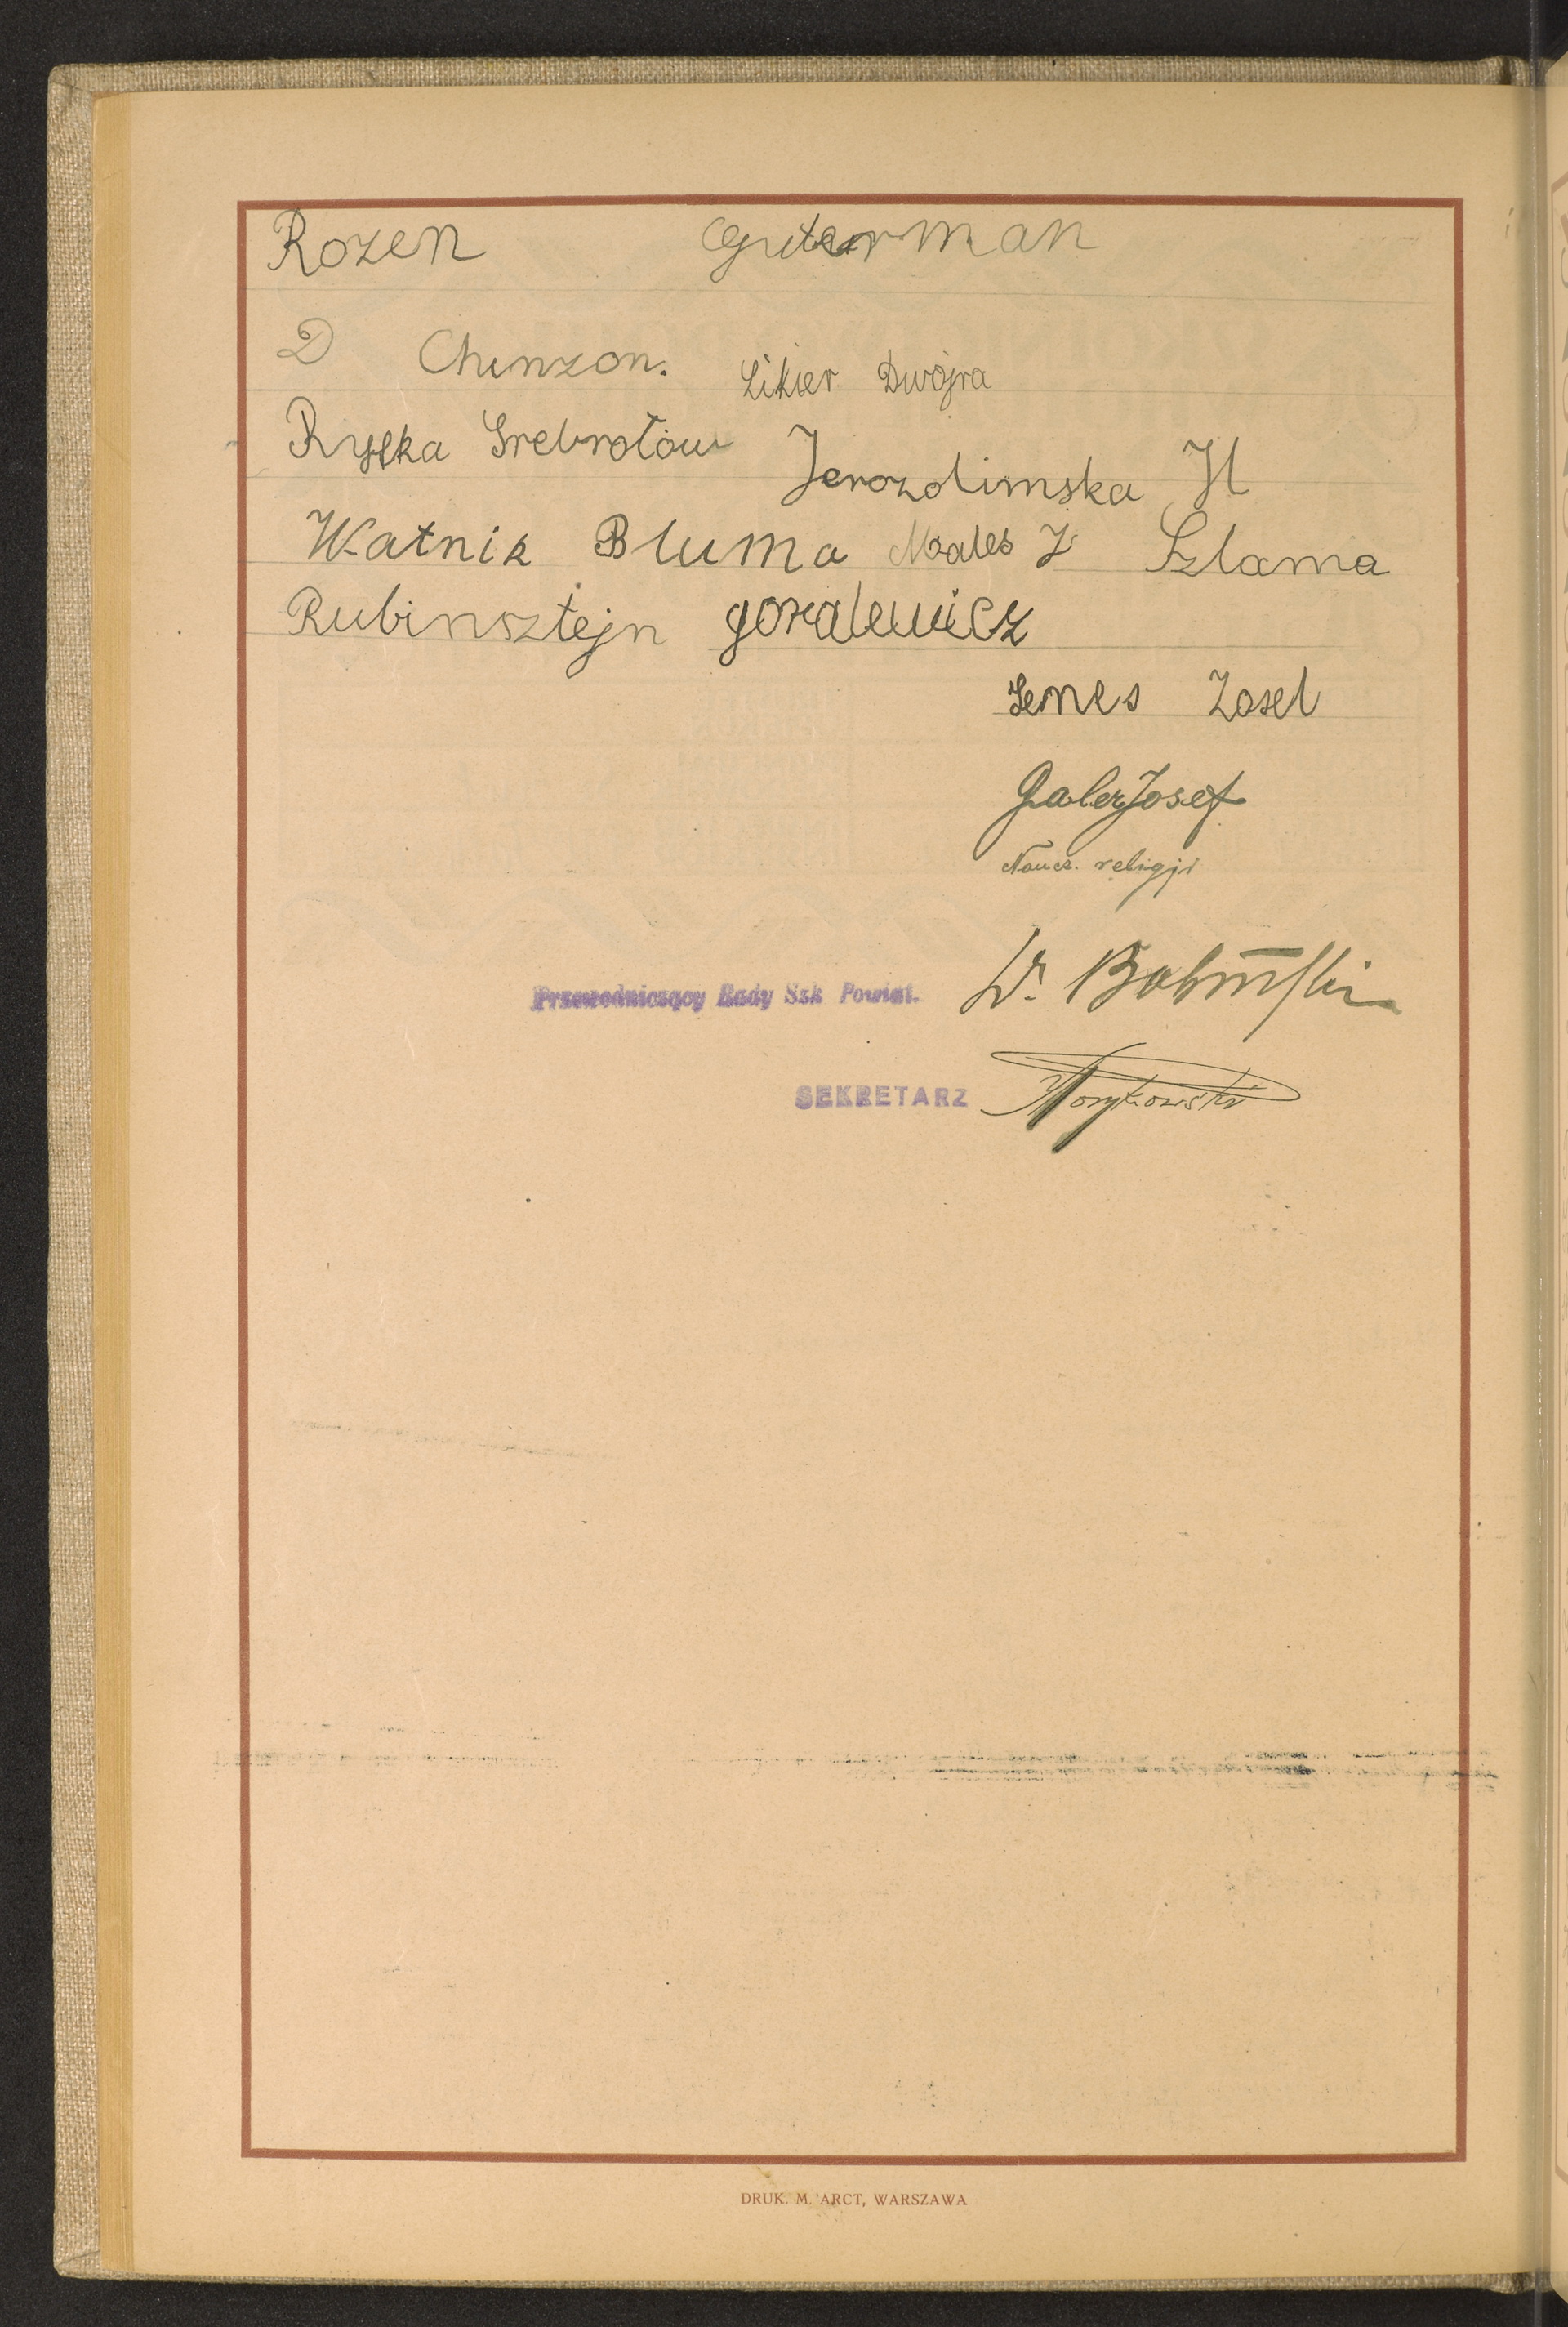 Rozen Guterman
D Chinzon. Likier Dwojra
Rywka Srebrołow Jerozolimska H
Watnik Bluma Males J Szlama
Rubinsztejn goralewicz
Jenes Josel
Galer Josef
Naucz. religji
Przewodniczący Rady Szk Powiat. Dr.
SEKRETARZ
DRUK. M. ARCT, WARSZAWA